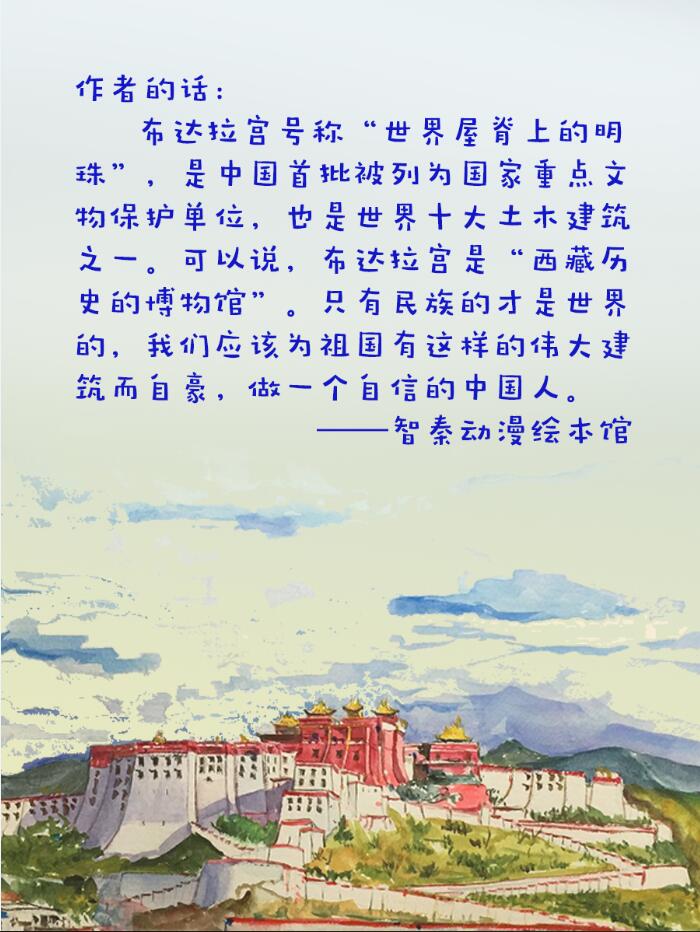 作者的话：
布达拉宫号称“世界屋脊上的明
珠”，是中国首批被列为国家重点文
物保护单位，也是世界十大土木建筑
之一。可以说，布达拉宫是“西藏历
史的博物馆”。只有民族的才是世界
的，我们应该为祖国有这样的伟大建
筑而自豪，做一个自信的中国人。
——智秦动漫绘本馆